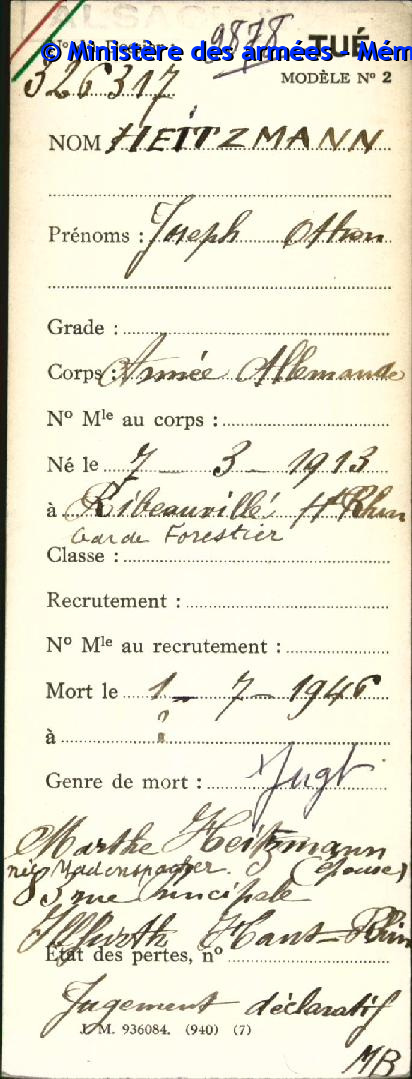 ALSACE
© Ministère des armées - Mém
9878 TUÉ
326317
MODÈLE Nº 2
NOM HEITZMANN
Prénoms : Joseph Othon
Grade :
Corps : Armée Allemande
Nº Mle au corps :
Né le 7 - 3 - 1913
à Ribeauvillé Ht Rhin
Garde Forestier
Classe :
Recrutement :
Nº Mle au recrutement :
Mort le 1 - 7 - 1946
à ?
Genre de mort : Jugt
Marthe Heitzmann
née (épouse)
83 rue Principale
Illfurth Haut-Rhin
État des pertes, nº
Jugement déclaratif
J. M. 936084. (940) (7)
MB